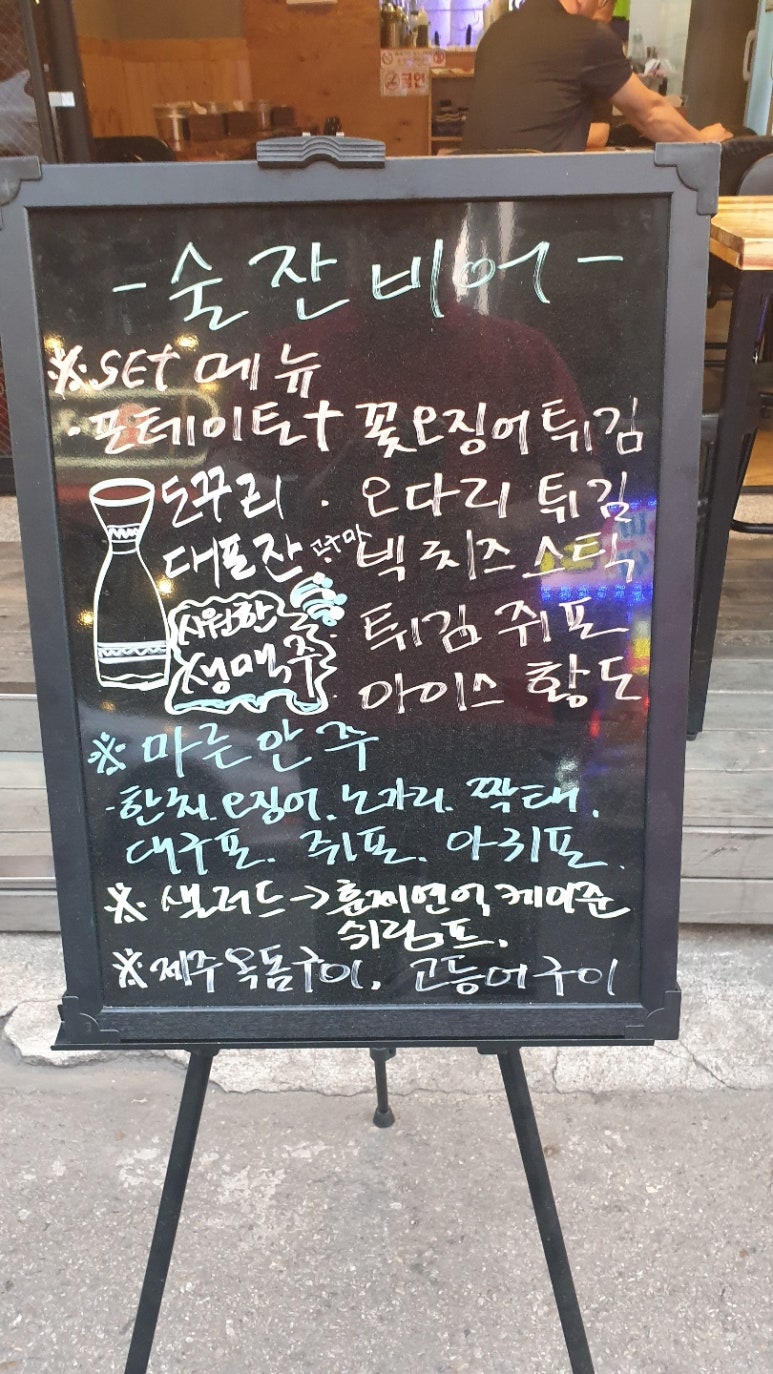 금연
- 술잔비어 -
※ SET 메뉴
· 포테이토 + 꽃오징어튀김
도꾸리 · 오다리 튀김
대포잔 고구마 빅치즈스틱
시원한 생맥주
· 튀김쥐포
· 아이스 황도
※ 마른안주
· 한치. 오징어. 노가리. 짝태.
대구포. 쥐포. 아귀포.
※ 샐러드 → 훈제연어 케이준
쉬림프.
※ 제주옥돔구이. 고등어구이